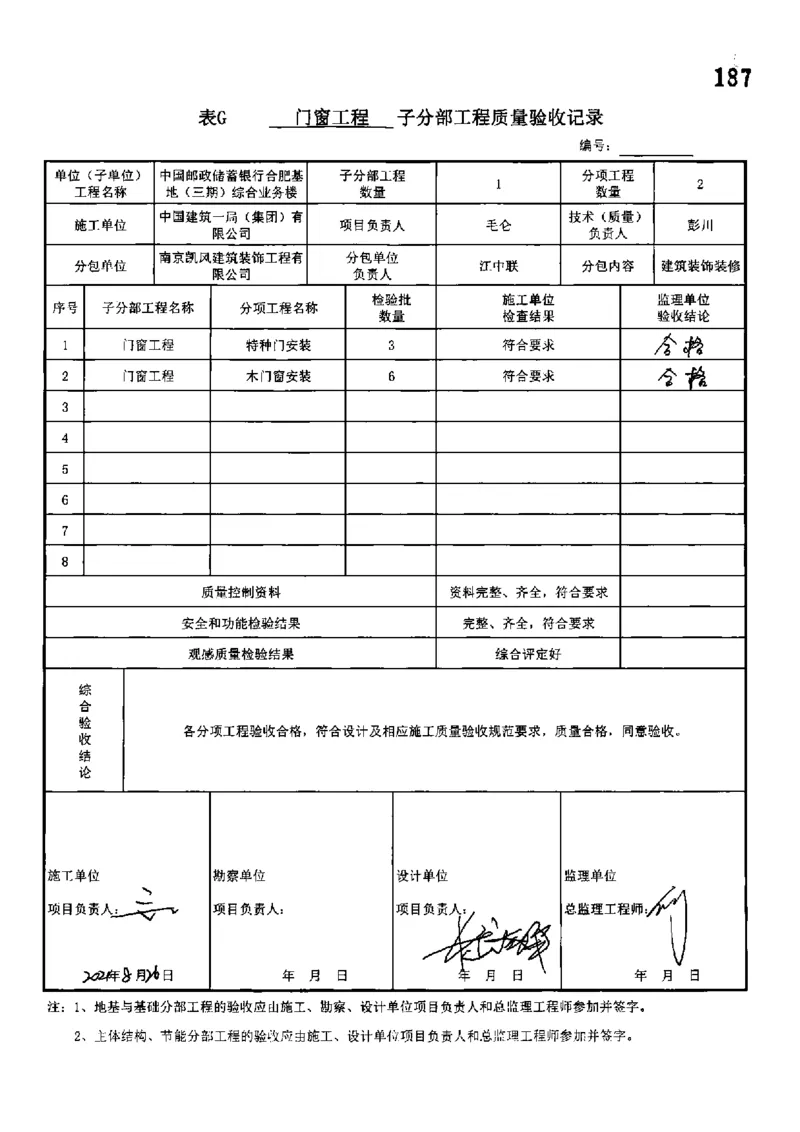 187
表G 门窗工程 子分部工程质量验收记录
编号：
单位（子单位）工程名称 中国邮政储蓄银行合肥基地（三期）综合业务楼 子分部工程数量 1 分项工程数量 2
施工单位 中国建筑一局（集团）有限公司 项目负责人 毛仑 技术（质量）负责人 彭川
分包单位 南京凯风建筑装饰工程有限公司 分包单位负责人 江中联 分包内容 建筑装饰装修
序号 子分部工程名称 分项工程名称 检验批数量 施工单位检查结果 监理单位验收结论
1 门窗工程 特种门安装 3 符合要求 合格
2 门窗工程 木门窗安装 6 符合要求 合格
3
4
5
6
7
8
质量控制资料 资料完整、齐全，符合要求
安全和功能检验结果 完整、齐全，符合要求
观感质量检验结果 综合评定好
综合验收结论 各分项工程验收合格，符合设计及相应施工质量验收规范要求，质量合格，同意验收。
施工单位 勘察单位 设计单位 监理单位
项目负责人： 项目负责人： 项目负责人： 总监理工程师：
年8月26日 年 月 日 年 月 日 年 月 日
注：1、地基与基础分部工程的验收应由施工、勘察、设计单位项目负责人和总监理工程师参加并签字。
2、主体结构、节能分部工程的验收应由施工、设计单位项目负责人和总监理工程师参加并签字。